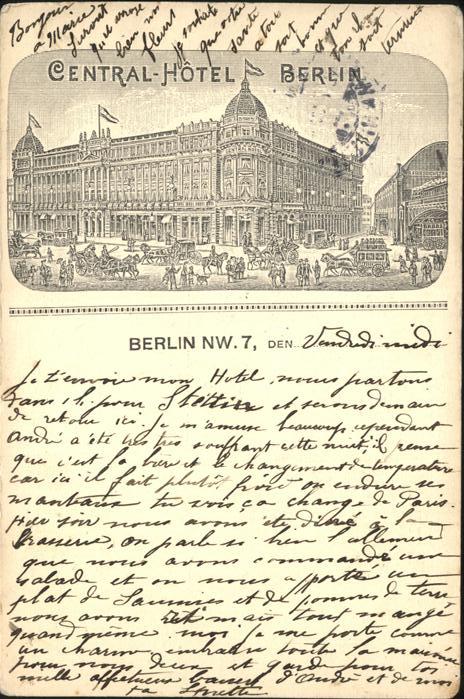 Bonjour
à Marie
CENTRAL-HÔTEL BERLIN
BERLIN NW. 7, DEN Vendredi midi
Je t'envoie mon Hotel, nous partons
dans 1 h. pour Stettin et serons demain
de retour ici je m'amuse beaucoup cependant
André a été très très souffrant cette nuit, il pense
que c'est la bière et le changement de température
car ici il fait plutôt froid on endure ses
manteaux tu vois ça change de Paris.
Hier soir nous avons été dîner à la
brasserie, on parle si bien l'allemand
que nous avons commandé une
salade et on nous a apporté un
plat de saumon et de pommes de terre
nous avons rit mais tout mangé
quand même moi je me porte comme
un charme, embrasse toute la
pour nous deux et garde pour toi
mille affectueux baisers d'André et de moi
ta